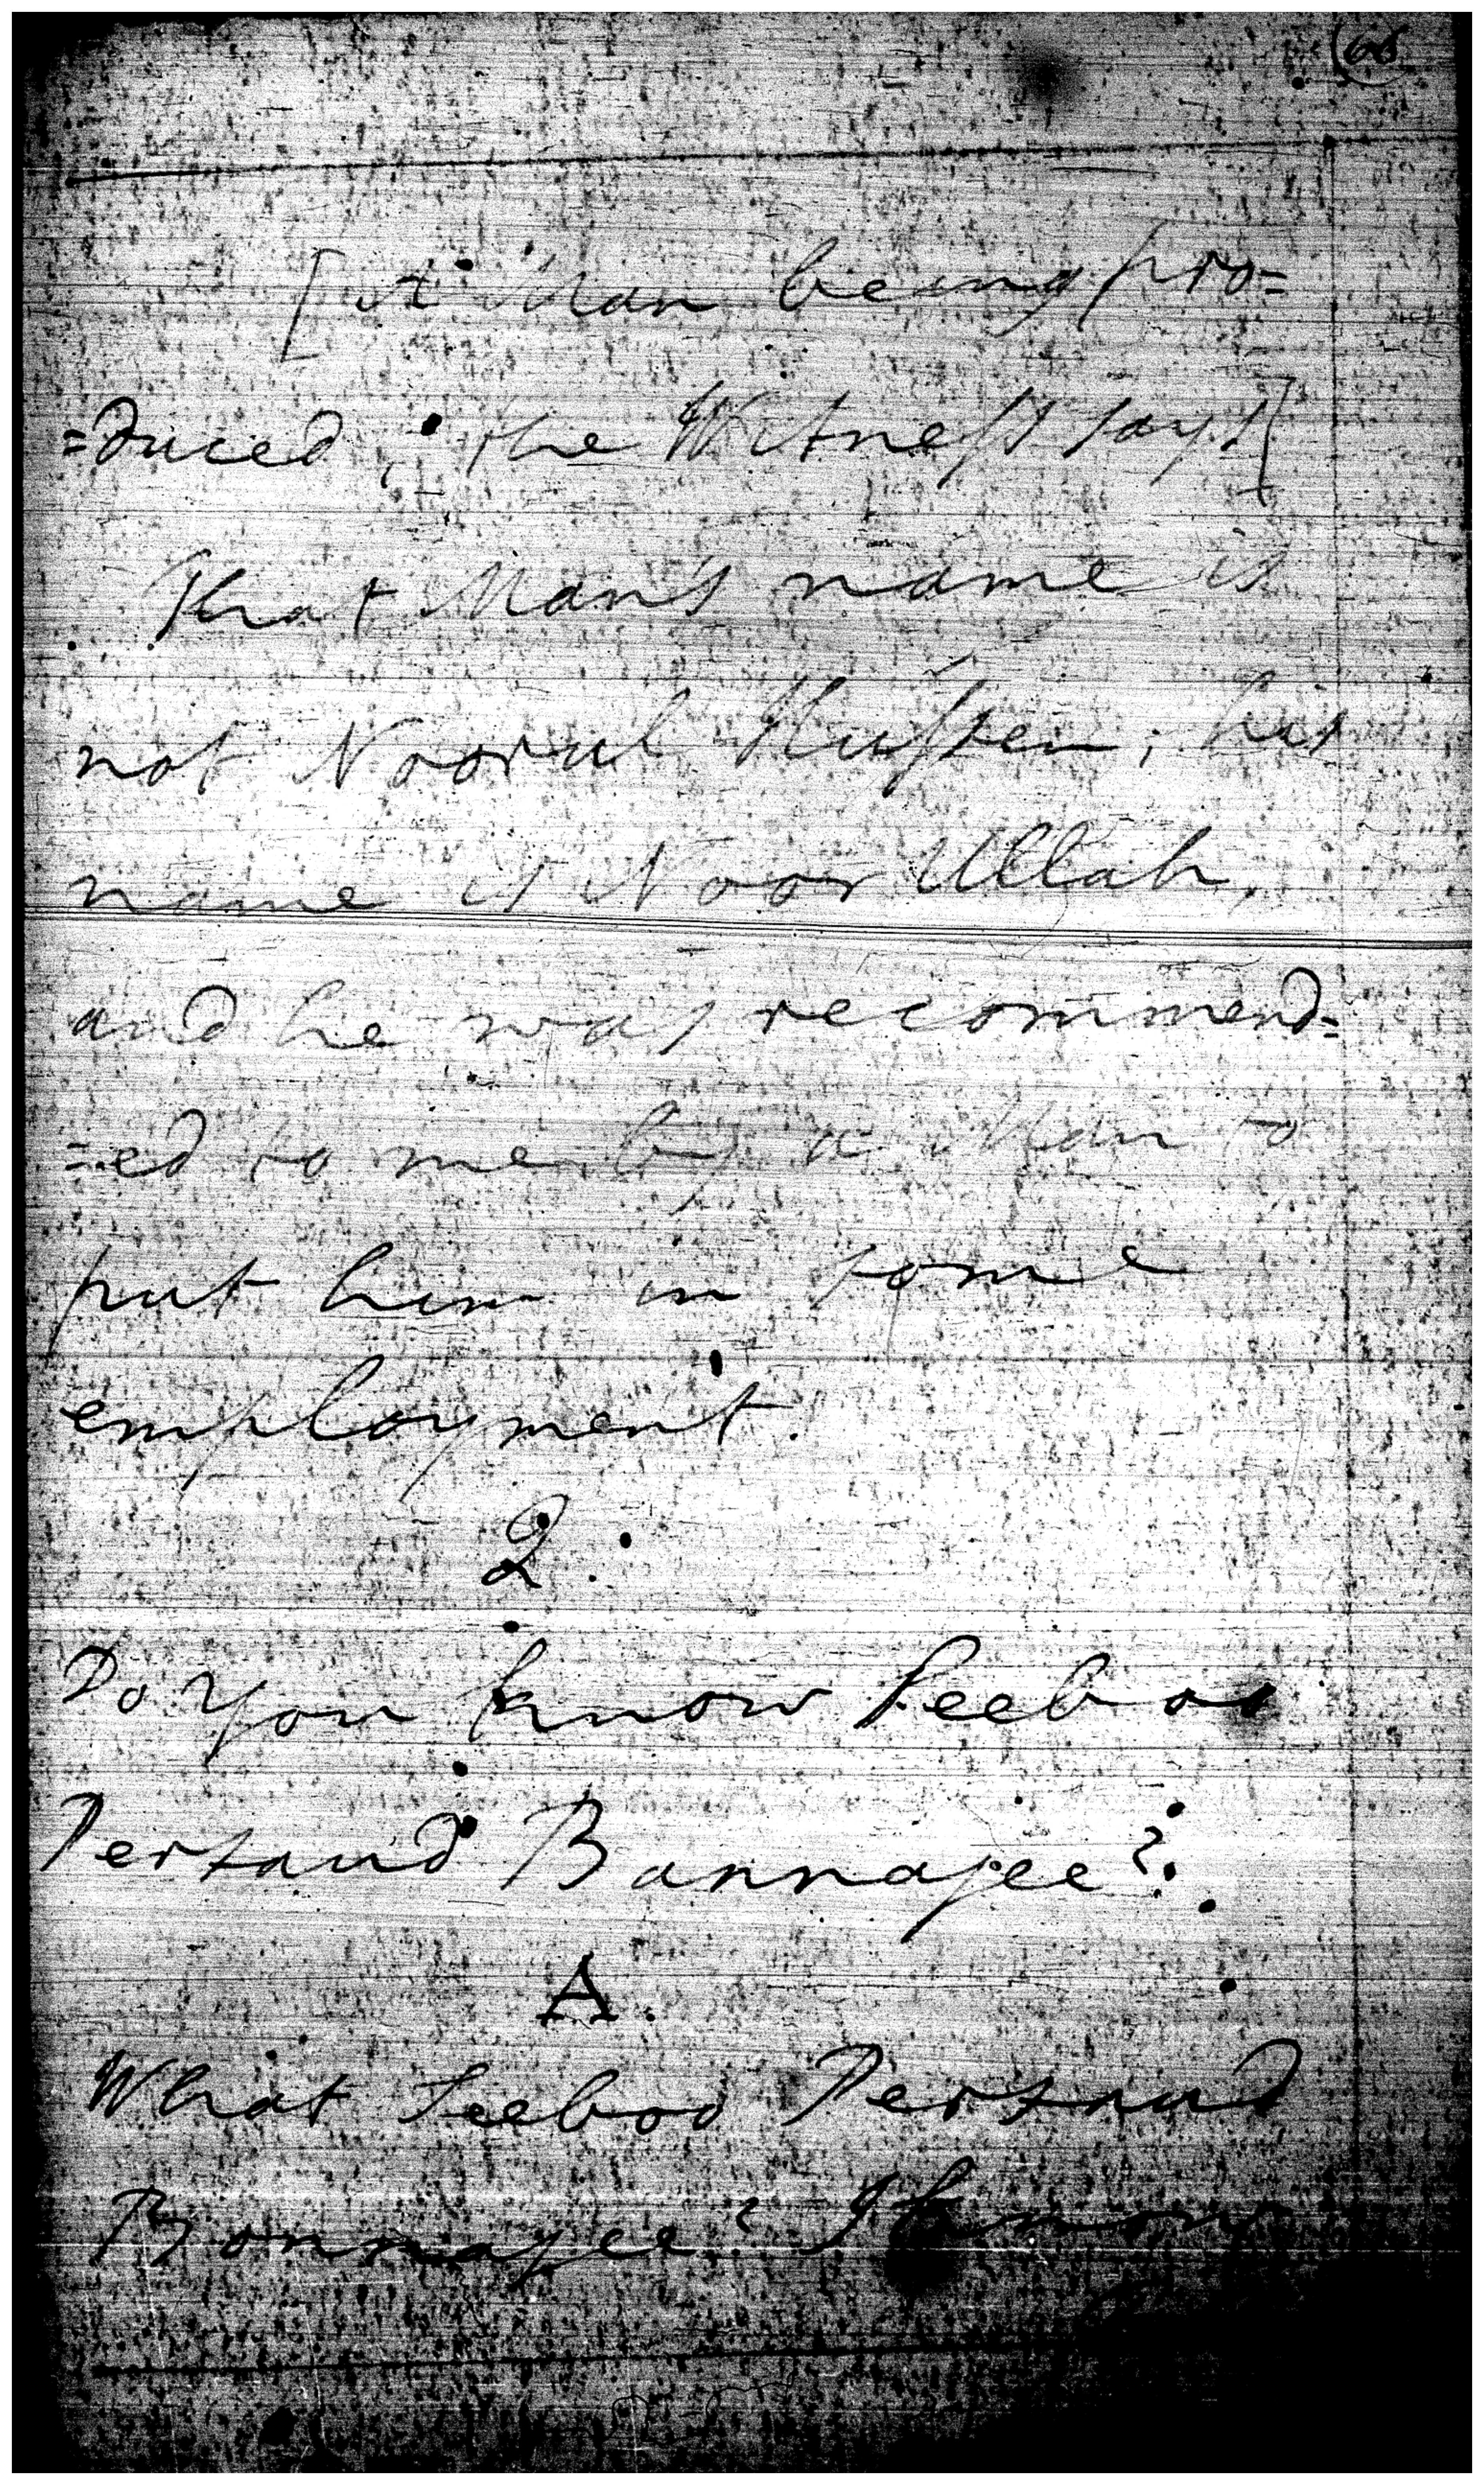 66
[A Man being pro=
=duced; the Witness says]
That Man's name is
not Noorul Hussen; his
name is Noor Ullah,
and he was recommend=
=ed to me by a Man to
put him in some
employment.
Q.
Do you know Seeboo
Persaud Bannajee?
A.
What Seeboo Persaud
Bonnajee? I know